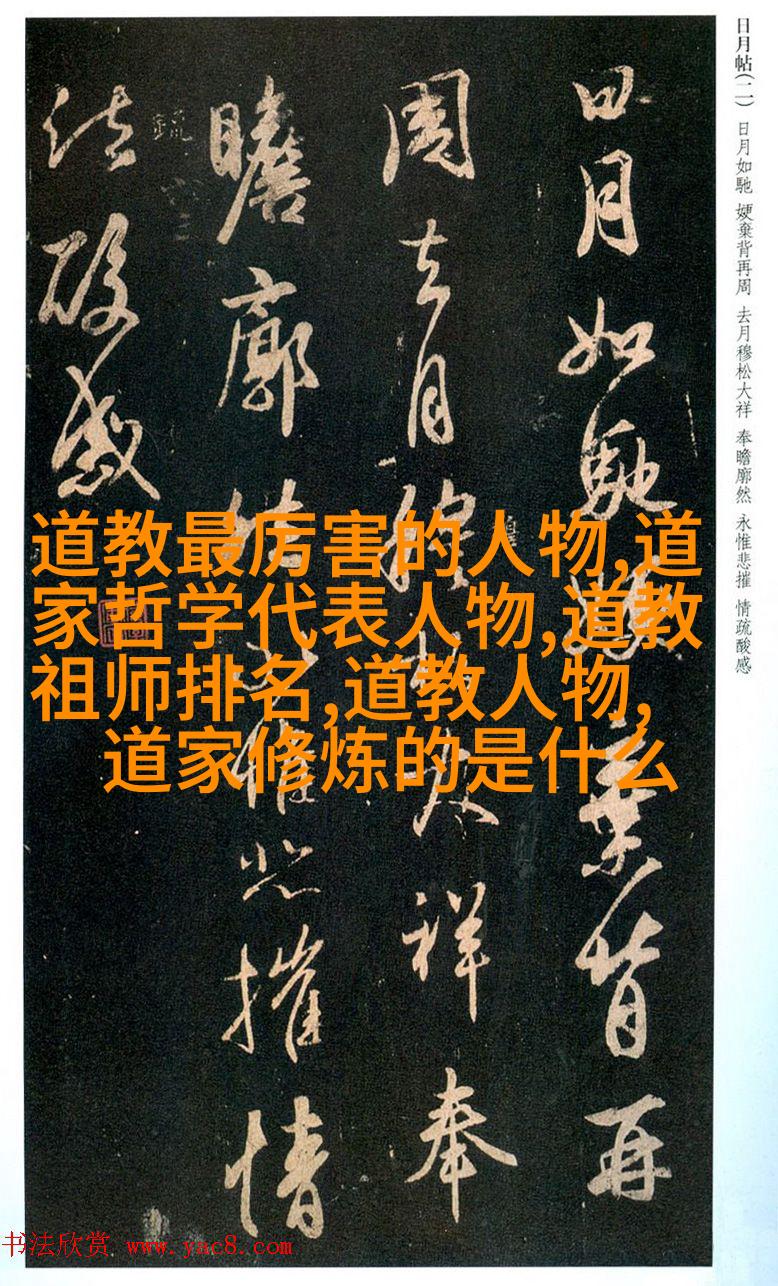 日月帖(二) 日月如馳 㛐棄背再周 去月穆松大祥 奉瞻廓然 永惟悲摧 情疏酸感
日月如馳㛐棄背再
周去月穆松大祥奉
瞻廓然永惟悲摧情
疏酸感
道教最厉害的人物,道
家哲学代表人物,道教
祖师排名,道教人物,
道家修炼的是什么
书法欣赏 www.yac8.com